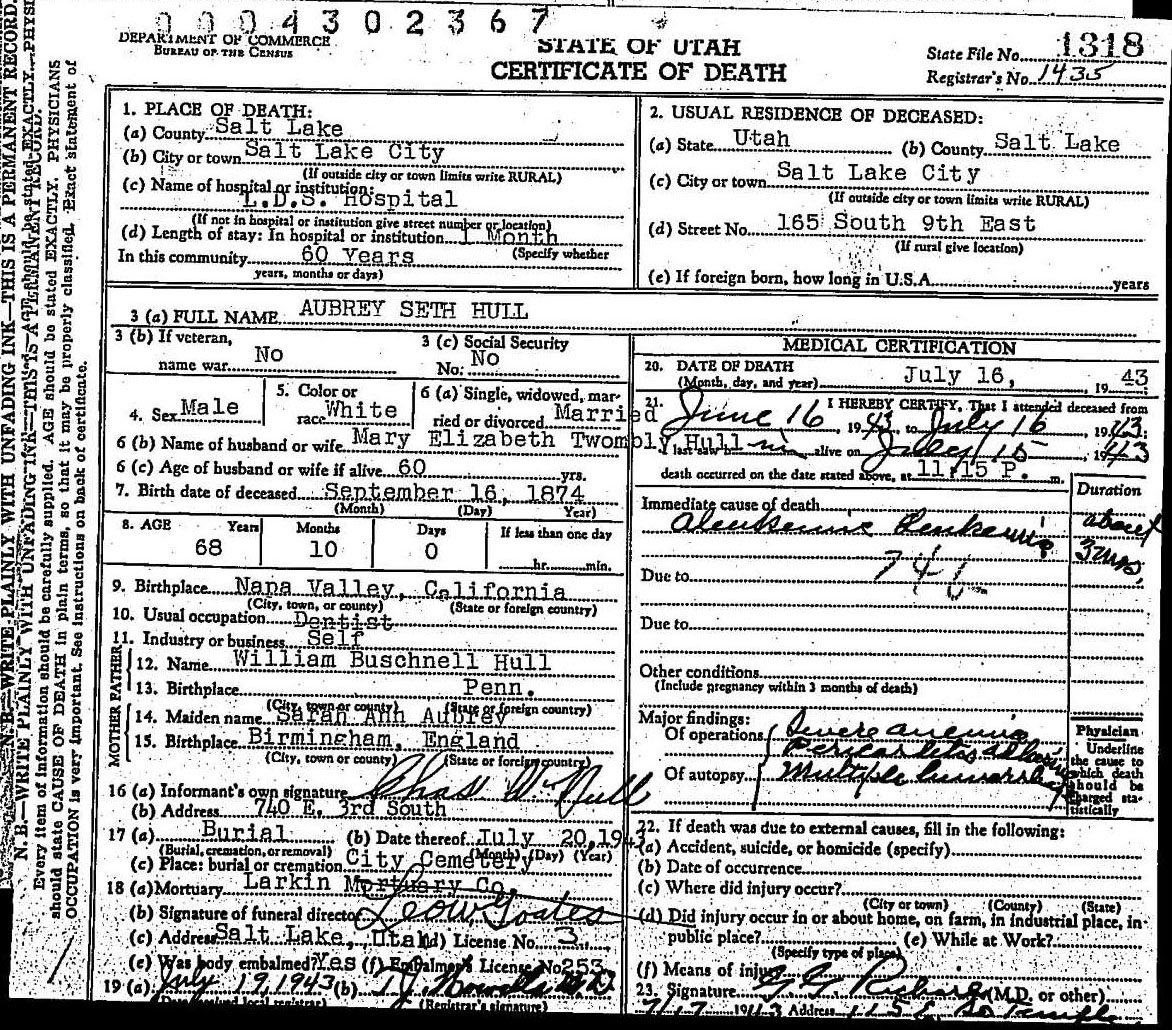 0004302367
DEPARTMENT OF COMMERCE
BUREAU OF THE CENSUS
STATE OF UTAH
CERTIFICATE OF DEATH
State File No. 1318
Registrar's No. 1435
N. B.—WRITE PLAINLY WITH UNFADING INK—THIS IS A PERMANENT RECORD.
Every item of information should be carefully supplied. AGE should be stated EXACTLY. PHYSICIANS
should state CAUSE OF DEATH in plain terms, so that it may be properly classified. Exact statement of
OCCUPATION is very important. See instructions on back of certificate.
1. PLACE OF DEATH:
(a) County Salt Lake
(b) City or town Salt Lake City
(If outside city or town limits write RURAL)
(c) Name of hospital or institution:
L.D.S. Hospital
(If not in hospital or institution give street number or location)
(d) Length of stay: In hospital or institution 1 Month
(Specify whether
In this community 60 Years
years, months or days)
2. USUAL RESIDENCE OF DECEASED:
(a) State Utah (b) County Salt Lake
(c) City or town Salt Lake City
(If outside city or town limits write RURAL)
(d) Street No. 165 South 9th East
(If rural give location)
(e) If foreign born, how long in U.S.A. years
3 (a) FULL NAME AUBREY SETH HULL
3 (b) If veteran,
name war No
3 (c) Social Security
No: No
4. Sex Male
5. Color or
race White
6 (a) Single, widowed, mar-
ried or divorced Married
6 (b) Name of husband or wife Mary Elizabeth Twombly Hull
6 (c) Age of husband or wife if alive 60 yrs.
7. Birth date of deceased September 16, 1874
(Month) (Day) Year)
8. AGE Years Months Days If less than one day
68 10 0 hr. min.
9. Birthplace Napa Valley, California
(City, town, or county) (State or foreign country)
10. Usual occupation Dentist
11. Industry or business Self
FATHER
12. Name William Buschnell Hull
13. Birthplace Penn.
(City, town or county) (State or foreign country)
MOTHER
14. Maiden name Sarah Ann Aubrey
15. Birthplace Birmingham, England
(City, town or county) (State or foreign country)
16 (a) Informant's own signature Chas W Hull
(b) Address 740 E. 3rd South
17 (a) Burial (b) Date thereof July 20,1943
(Burial, cremation, or removal) (Month) (Day) (Year)
(c) Place: burial or cremation City Cemetery
18 (a) Mortuary Larkin Mortuary Co.
(b) Signature of funeral director Leo W Goates
(c) Address Salt Lake, Utah (d) License No. 3
(e) Was body embalmed? Yes (f) Embalmer's License No 253
19 (a) July 19, 1943 (b) M.D.
(Registrar's signature)
MEDICAL CERTIFICATION
20. DATE OF DEATH
(Month, day, and year) July 16, 1943
21. I HEREBY CERTIFY, That I attended deceased from
June 16 1943, to July 16 1943
I last saw him alive on July 15 1943
death occurred on the date stated above, at 11:15 P. m.
Duration
Immediate cause of death
Aleukemic Leukemia about
3 mos.
Due to
Due to
Other conditions
(Include pregnancy within 3 months of death)
Major findings:
Of operations Severe anemia
Of autopsy Multiple
Physician
Underline
the cause to
which death
should be
charged sta-
tistically
22. If death was due to external causes, fill in the following:
(a) Accident, suicide, or homicide (specify)
(b) Date of occurrence
(c) Where did injury occur?
(City or town) (County) (State)
(d) Did injury occur in or about home, on farm, in industrial place, in
public place? (e) While at Work?
(Specify type of place)
(f) Means of injury
23. Signature (M.D. or other)
7/17 1943 Address 115 E. So Temple